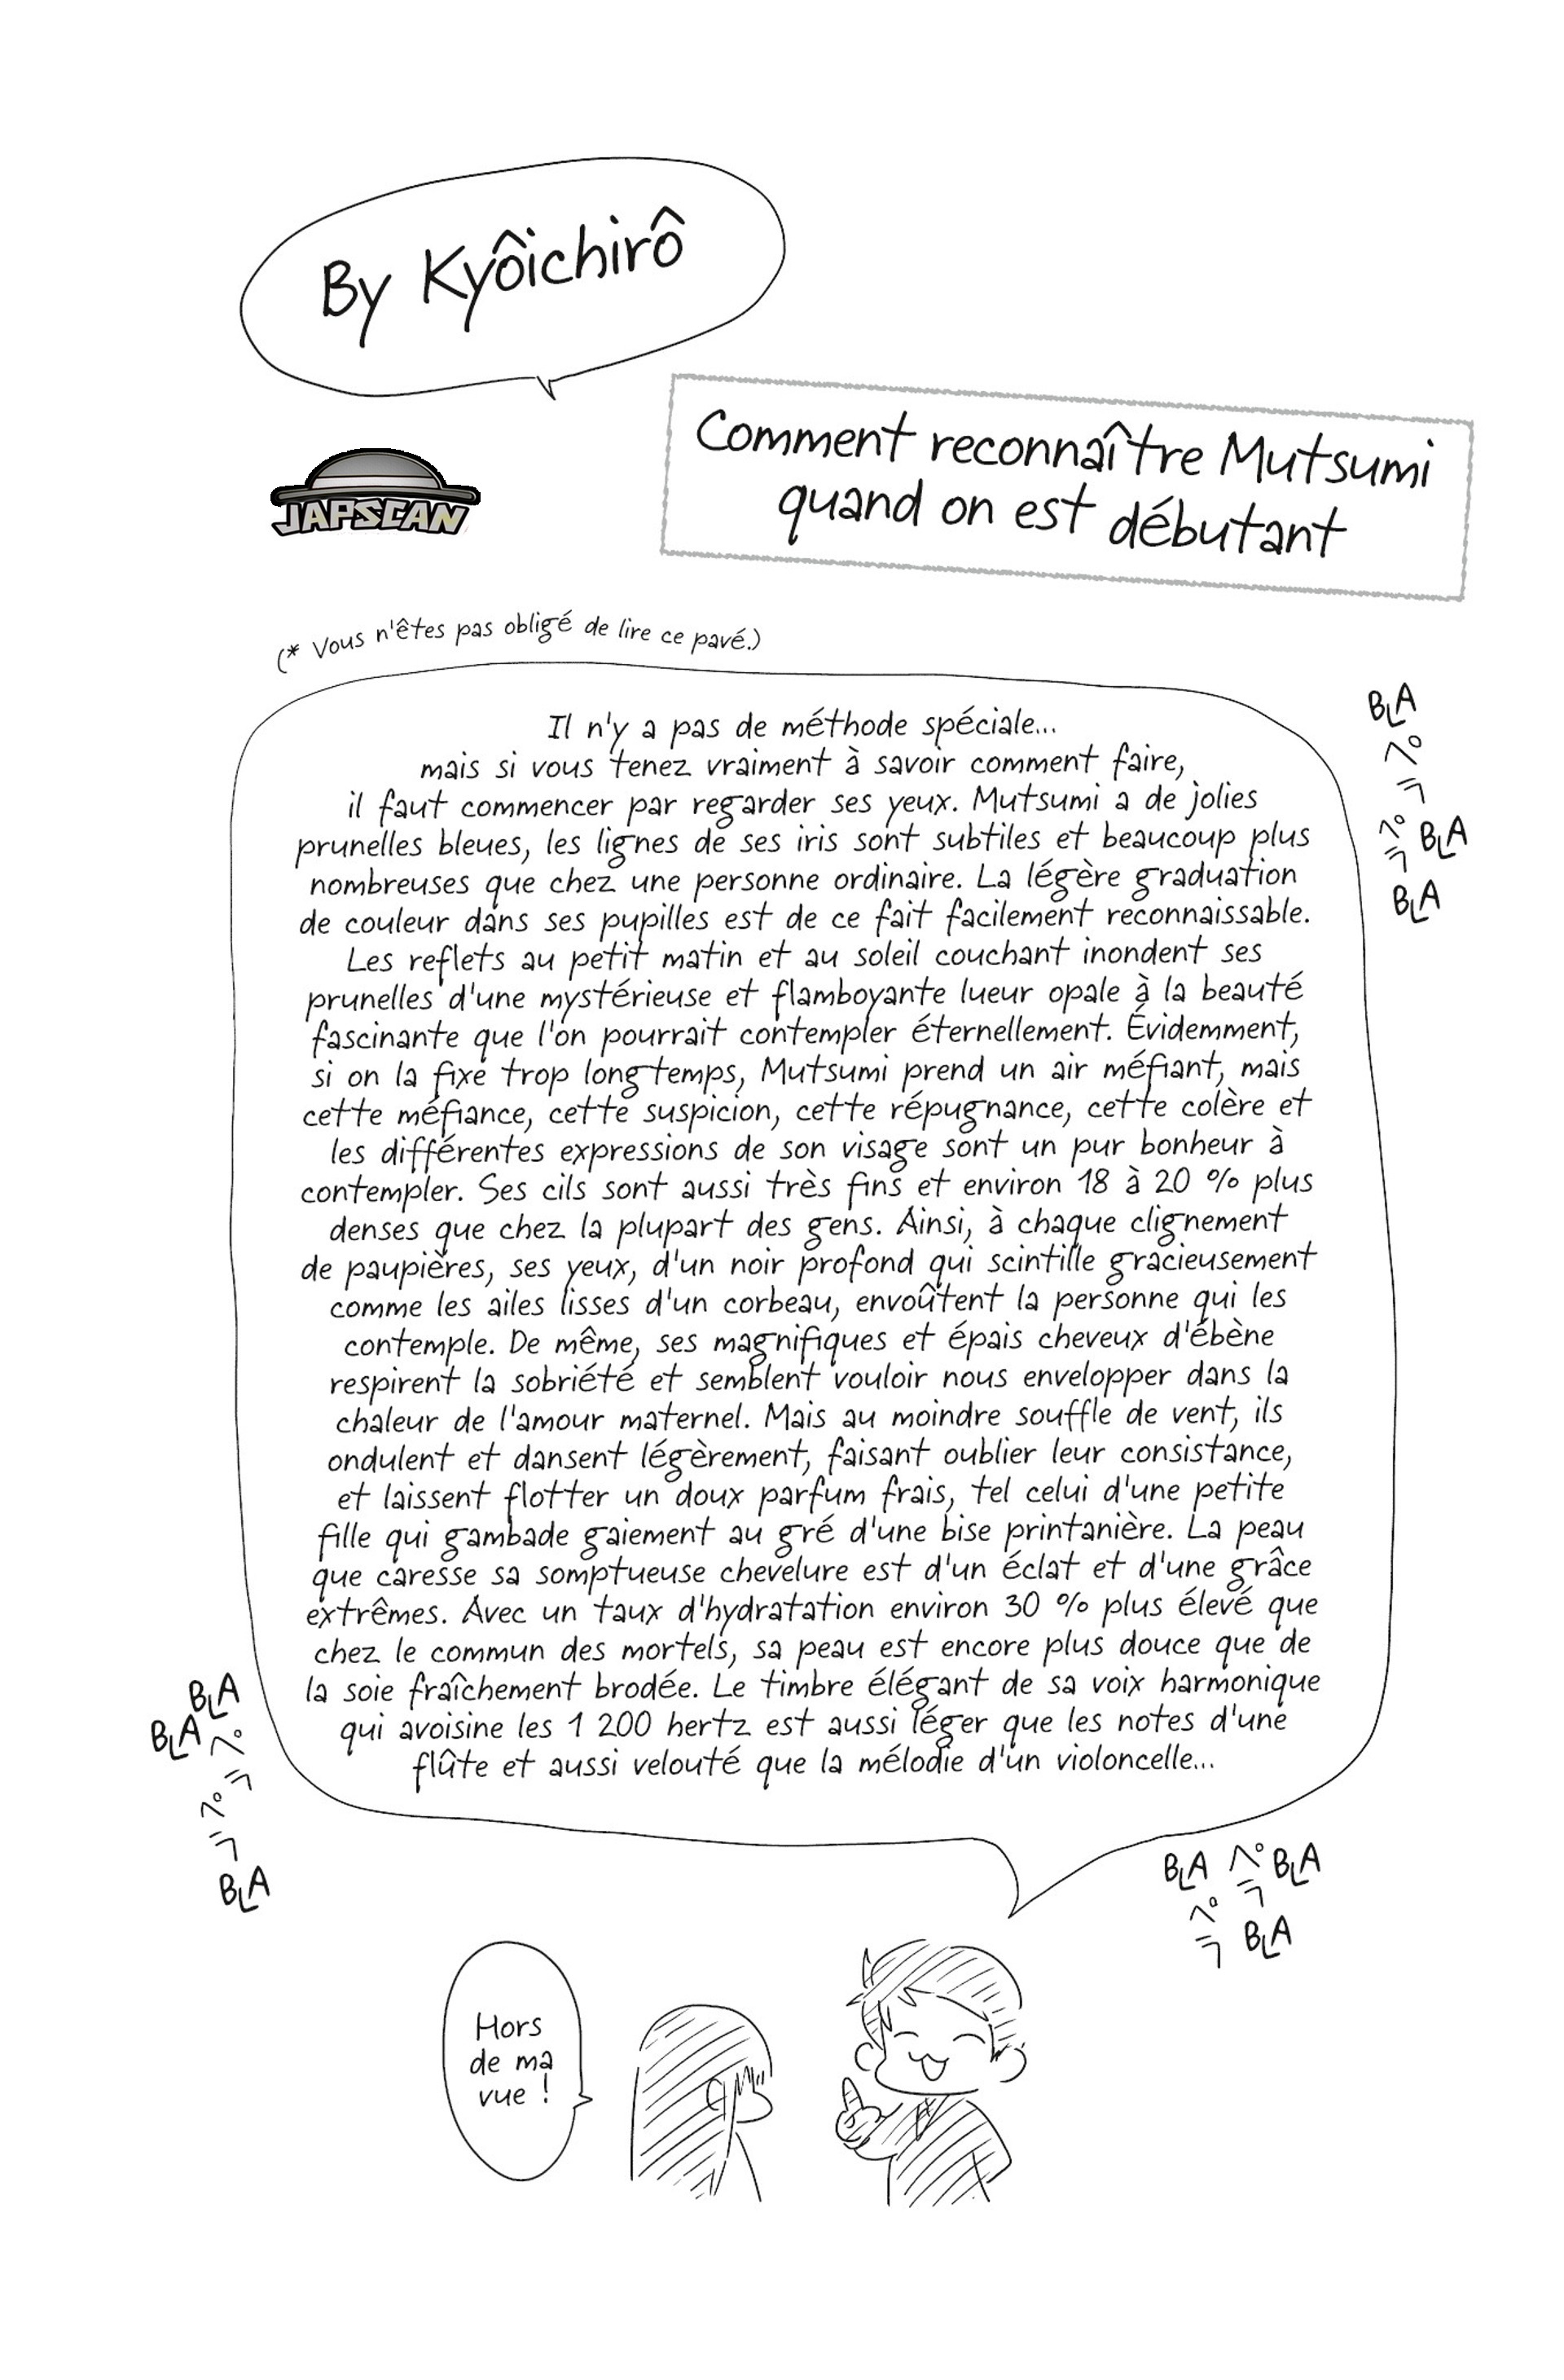 By Kyôichirô
JAPSCAN
Comment reconnaître Mutsumi
quand on est débutant
(* Vous n'êtes pas obligé de lire ce pavé.)
Il n'y a pas de méthode spéciale...
mais si vous tenez vraiment à savoir comment faire,
il faut commencer par regarder ses yeux. Mutsumi a de jolies
prunelles bleues, les lignes de ses iris sont subtiles et beaucoup plus
nombreuses que chez une personne ordinaire. La légère graduation
de couleur dans ses pupilles est de ce fait facilement reconnaissable.
Les reflets au petit matin et au soleil couchant inondent ses
prunelles d'une mystérieuse et flamboyante lueur opale à la beauté
fascinante que l'on pourrait contempler éternellement. Évidemment,
si on la fixe trop longtemps, Mutsumi prend un air méfiant, mais
cette méfiance, cette suspicion, cette répugnance, cette colère et
les différentes expressions de son visage sont un pur bonheur à
contempler. Ses cils sont aussi très fins et environ 18 à 20 % plus
denses que chez la plupart des gens. Ainsi, à chaque clignement
de paupières, ses yeux, d'un noir profond qui scintille gracieusement
comme les ailes lisses d'un corbeau, envoûtent la personne qui les
contemple. De même, ses magnifiques et épais cheveux d'ébène
respirent la sobriété et semblent vouloir nous envelopper dans la
chaleur de l'amour maternel. Mais au moindre souffle de vent, ils
ondulent et dansent légèrement, faisant oublier leur consistance,
et laissent flotter un doux parfum frais, tel celui d'une petite
fille qui gambade gaiement au gré d'une bise printanière. La peau
que caresse sa somptueuse chevelure est d'un éclat et d'une grâce
extrêmes. Avec un taux d'hydratation environ 30 % plus élevé que
chez le commun des mortels, sa peau est encore plus douce que de
la soie fraîchement brodée. Le timbre élégant de sa voix harmonique
qui avoisine les 1 200 hertz est aussi léger que les notes d'une
flûte et aussi velouté que la mélodie d'un violoncelle...
BLA
ペラ
ペラ
BLA
BLA
BLA
BLA
ペラ
ペラ
BLA
BLA
ペラ
BLA
ペラ
BLA
Hors
de ma
vue !